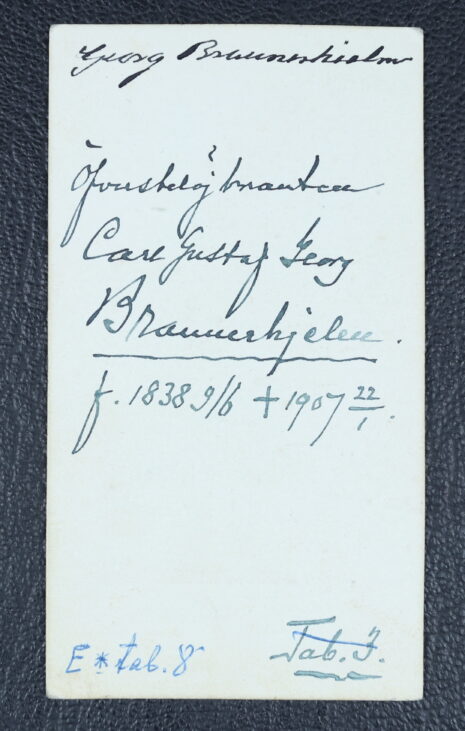 Georg Braunerhielm
Öfverstelöjtnanten
Carl Gustaf Georg
Braunerhjelm.
f. 1838 9/6 + 1907 22/1.
E * tab. 8
Tab. 7.